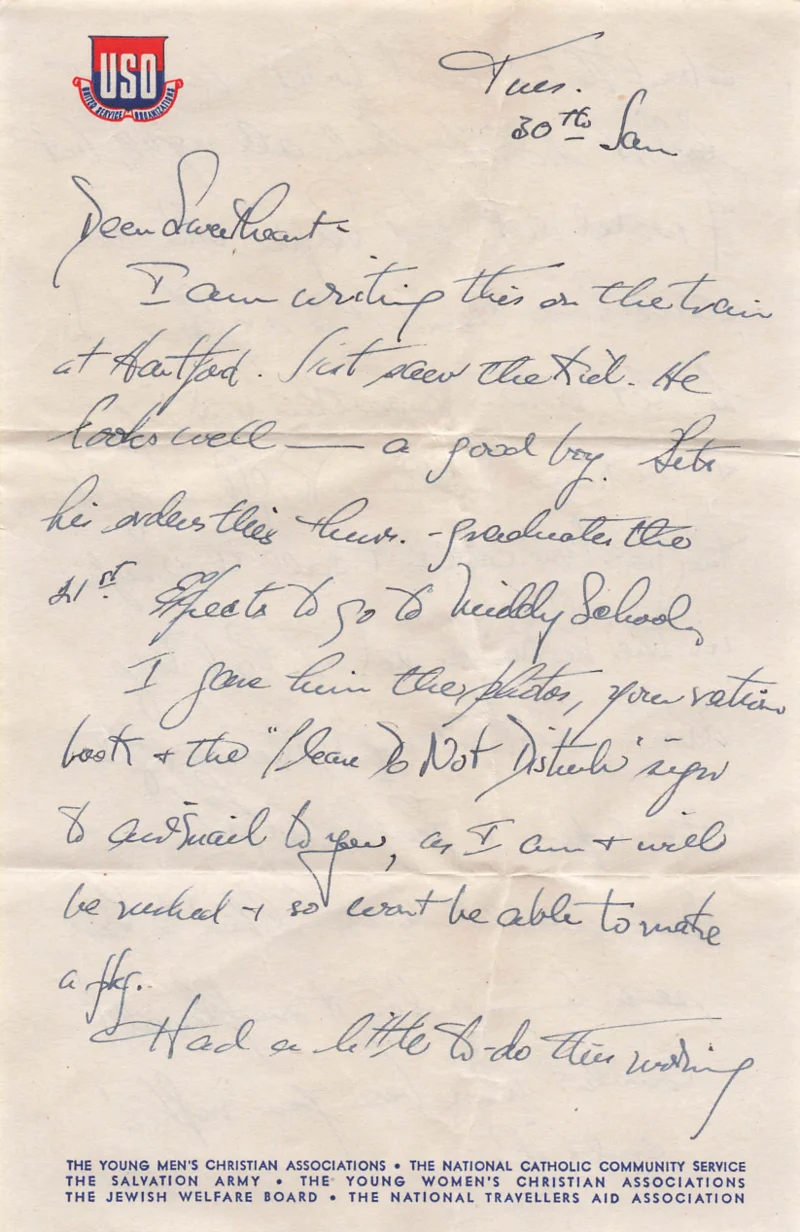 USO
UNITED SERVICE ORGANIZATIONS
Tues.
30th Jan
Dear Sweetheart-
I am writing this on the train
at Hartford. Just saw the Kid. He
looks well — a good boy. Gets
his orders this thurs. - graduates the
21st. Expects to go to Middy School,
I gave him the photos, your ration
book + the "Please Do Not Disturb" sign
to mail to you, as I am + will
be rushed + so won't be able to make
a pkg.
Had a little to-do this morning
THE YOUNG MEN'S CHRISTIAN ASSOCIATIONS • THE NATIONAL CATHOLIC COMMUNITY SERVICE
THE SALVATION ARMY • THE YOUNG WOMEN'S CHRISTIAN ASSOCIATIONS
THE JEWISH WELFARE BOARD • THE NATIONAL TRAVELLERS AID ASSOCIATION